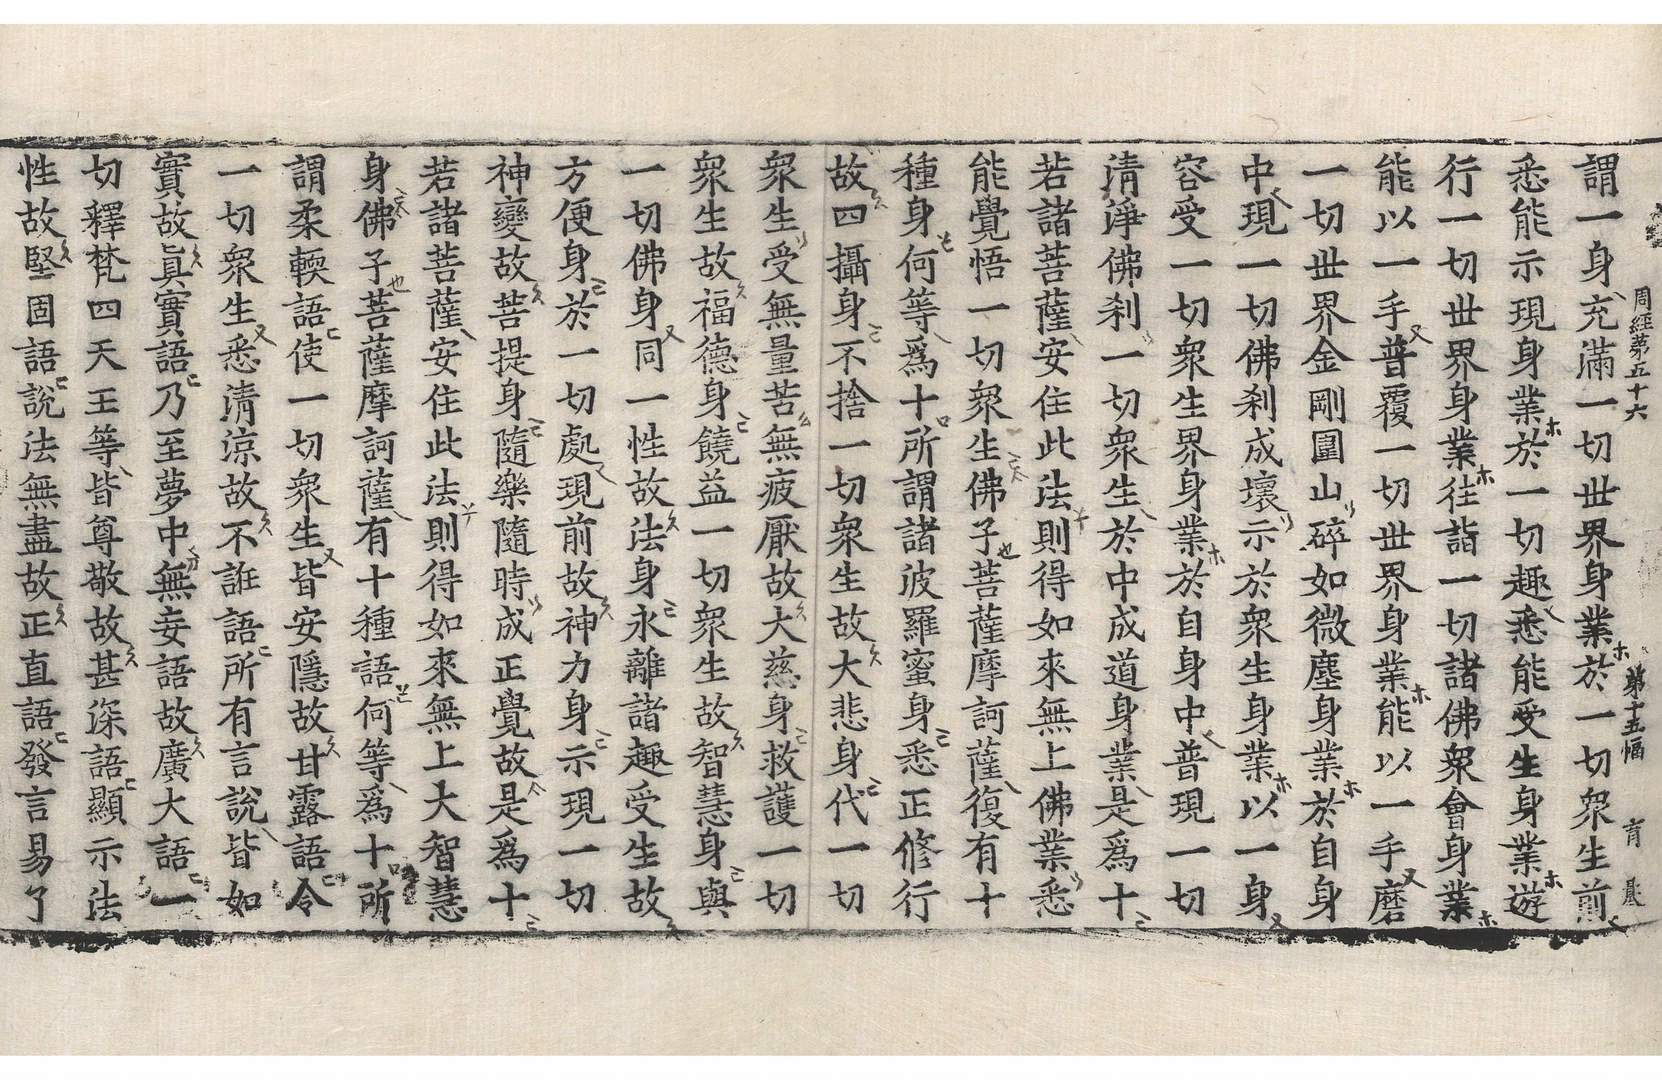 周經第五十六 第十五幅 育 最
謂一身充滿一切世界身業於一切衆生前
悉能示現身業於一切趣悉能受生身業遊
行一切世界身業往詣一切諸佛衆會身業
能以一手普覆一切世界身業能以一手磨
一切世界金剛圍山碎如微塵身業於自身
中現一切佛刹成壞示於衆生身業以一身
容受一切衆生界身業於自身中普現一切
清淨佛刹一切衆生於中成道身業是爲十
若諸菩薩安住此法則得如來無上佛業悉
能覺悟一切衆生佛子菩薩摩訶薩復有十
種身何等爲十所謂諸波羅蜜身悉正修行
故四攝身不捨一切衆生故大悲身代一切
衆生受無量苦無疲厭故大慈身救護一切
衆生故福德身饒益一切衆生故智慧身與
一切佛身同一性故法身永離諸趣受生故
方便身於一切處現前故神力身示現一切
神變故菩提身隨樂隨時成正覺故是爲十
若諸菩薩安住此法則得如來無上大智慧
身佛子菩薩摩訶薩有十種語何等爲十所
謂柔輭語使一切衆生皆安隱故甘露語令
一切衆生悉清涼故不誑語所有言說皆如
實故眞實語乃至夢中無妄語故廣大語一
切釋梵四天王等皆尊敬故甚深語顯示法
性故堅固語說法無盡故正直語發言易了